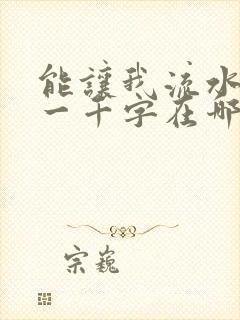 能讓我流水
一千字在哪
宗巍